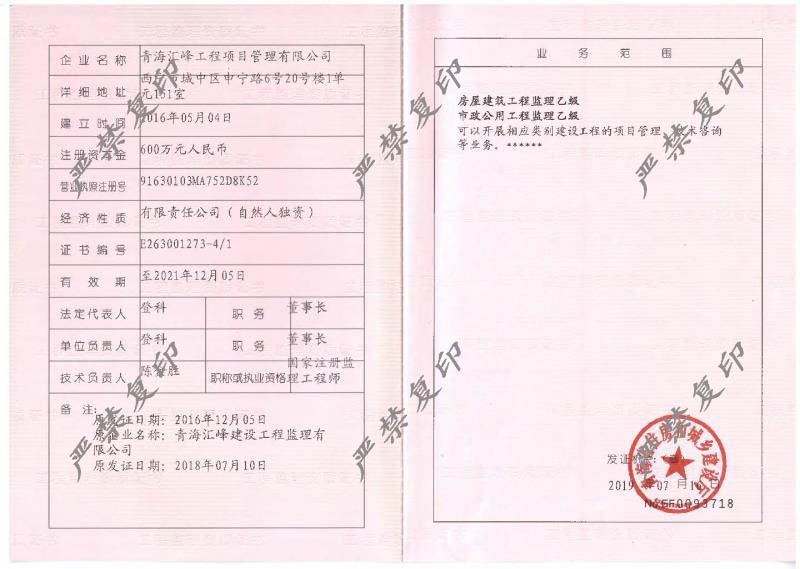 企业名称 青海汇峰工程项目管理有限公司
详细地址 西宁市城中区中宁路6号20号楼1单
元151室
建立时间 2016年05月04日
注册资本金 600万元人民币
营业执照注册号 91630103MA752D8K52
经济性质 有限责任公司（自然人独资）
证书编号 E263001273-4/1
有效期 至2021年12月05日
法定代表人 登科 职务 董事长
单位负责人 登科 职务 董事长
技术负责人 职称或执业资格 国家注册监
理工程师
备注:
原发证日期: 2016年12月05日
原企业名称: 青海汇峰建设工程监理有
限公司
原发证日期: 2018年07月10日
严禁复印
严禁复印
严禁复印
业务范围
房屋建筑工程监理乙级
市政公用工程监理乙级
可以开展相应类别建设工程的项目管理、技术咨询
等业务。******
严禁复印
严禁复印
严禁复印
青海省住房和城乡建设厅
发证机关:
2019年07月10日